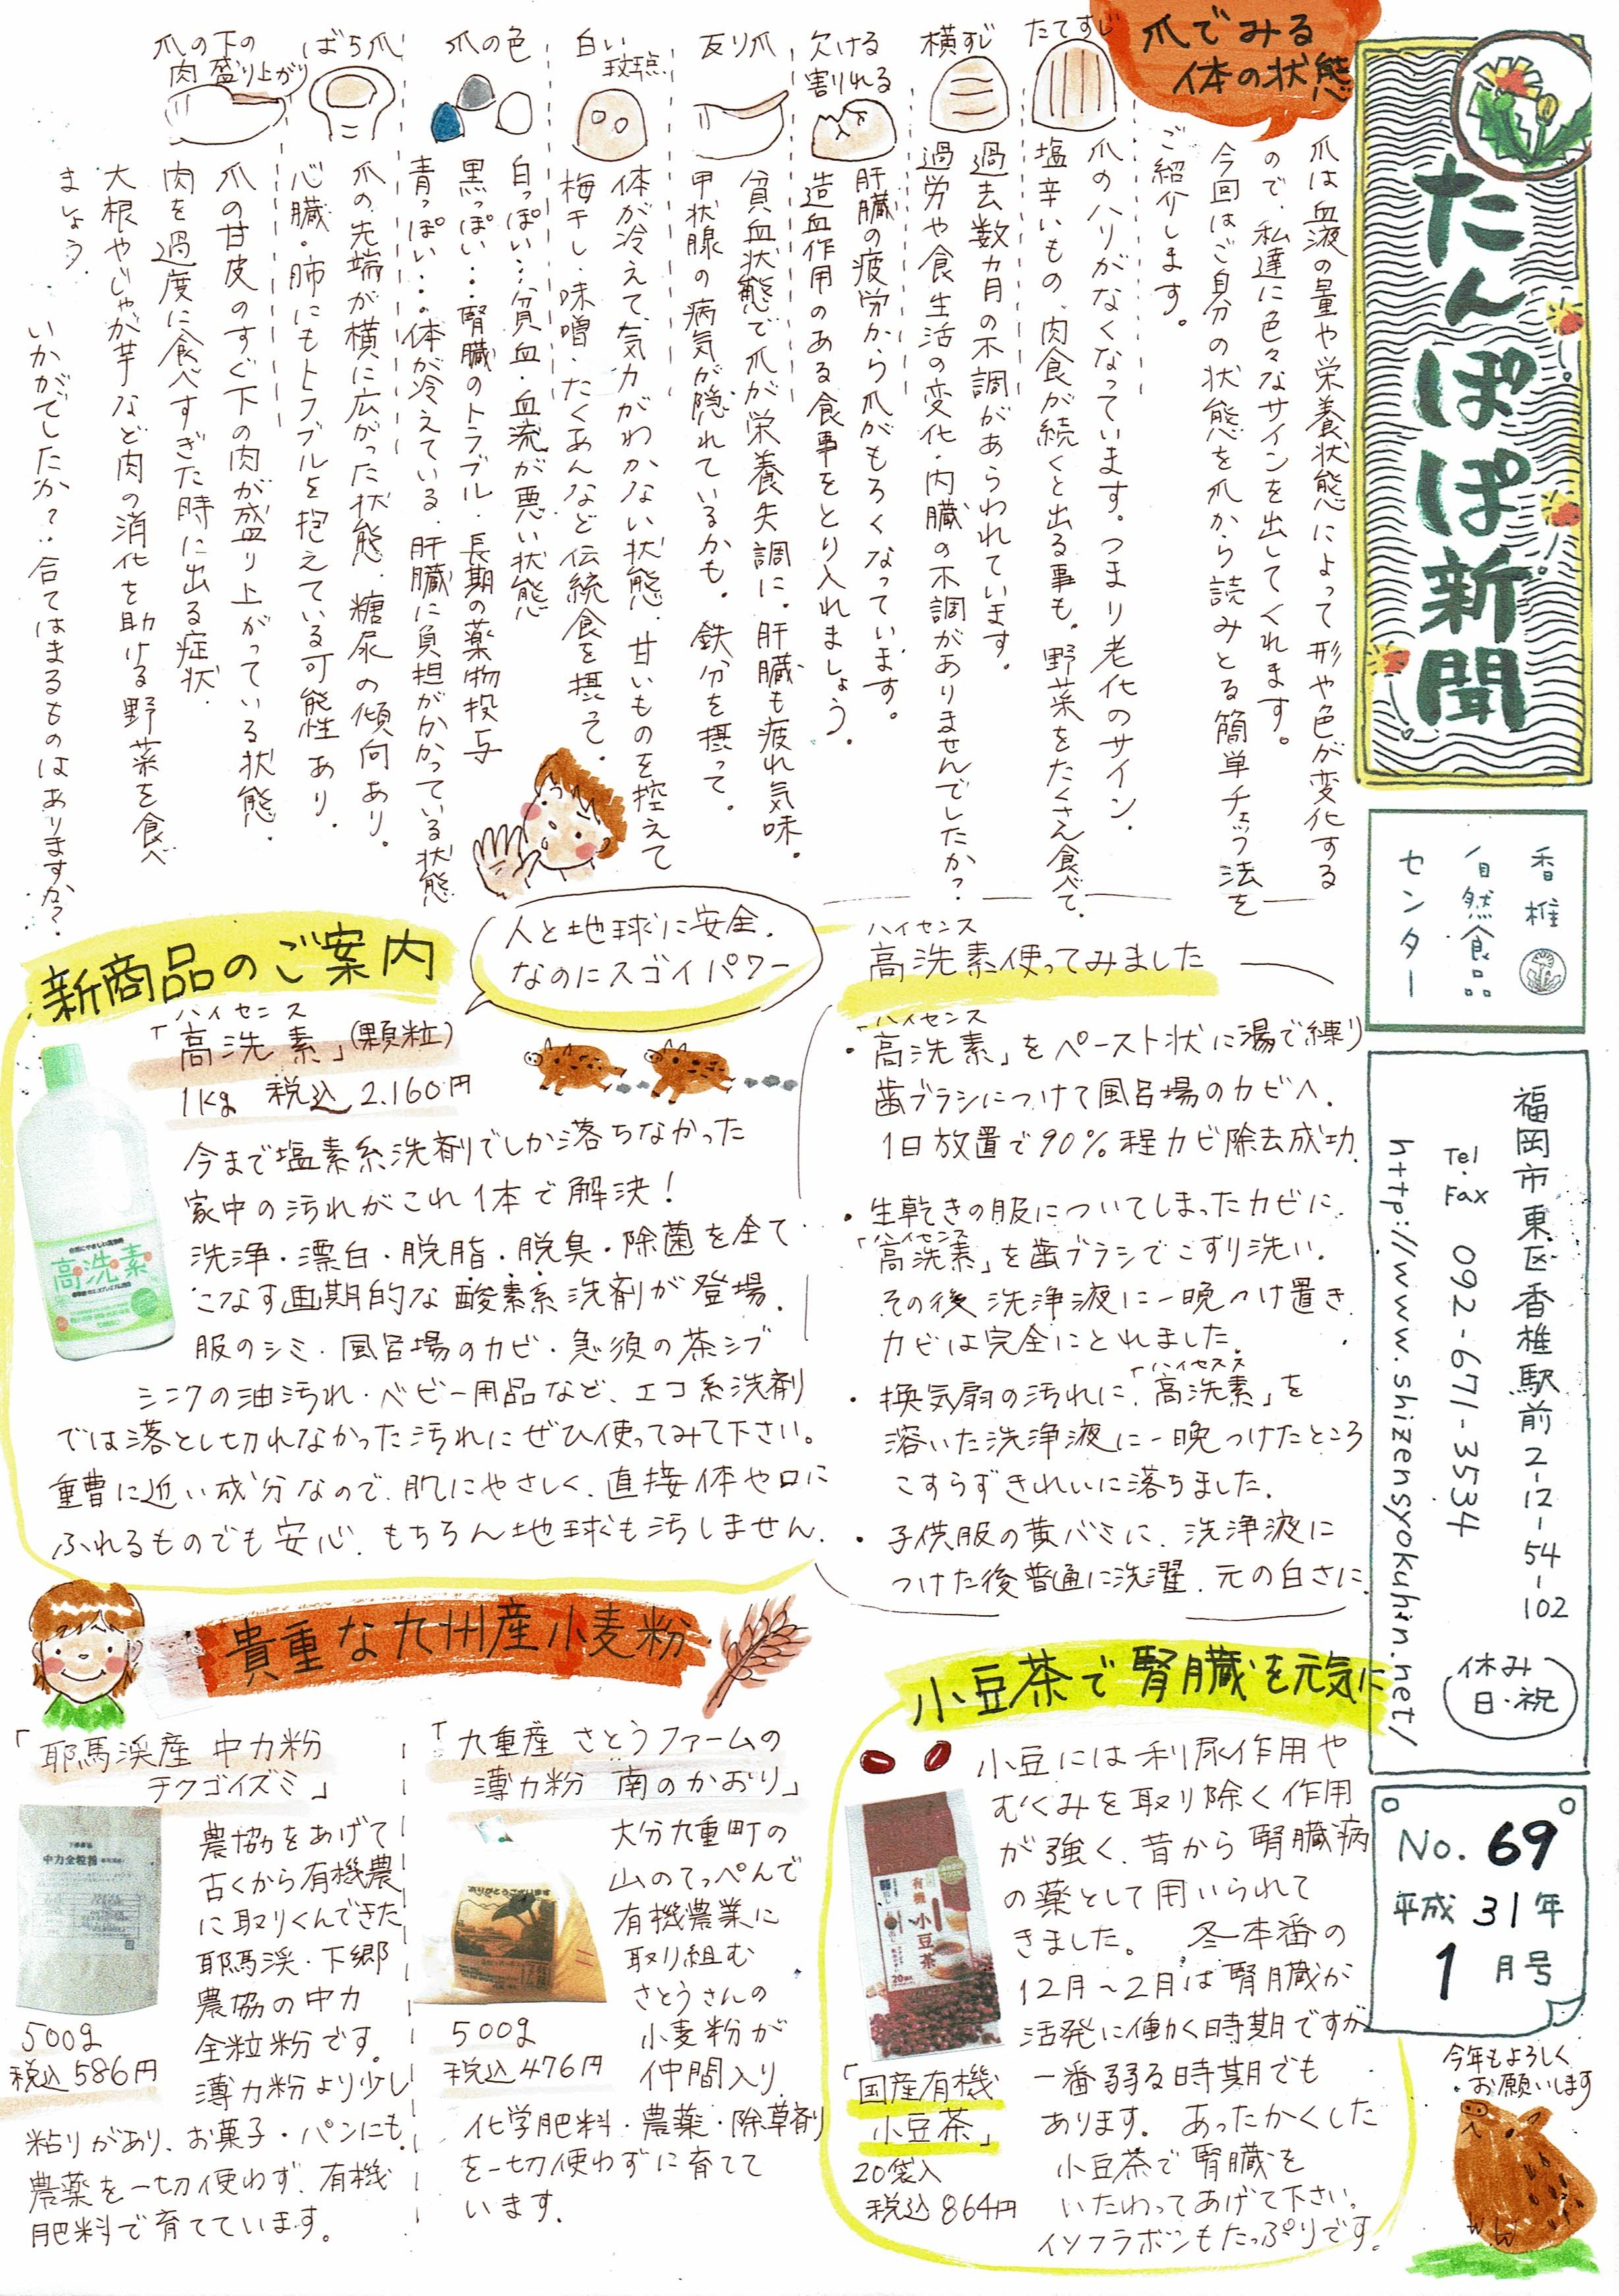 たんぽぽ新聞
香椎
自然食品
センター
福岡市東区香椎駅前2-12-54-102
Tel・Fax 092-671-3534
http://www.shizensyokuhin.net/
休み
日・祝
No. 69
平成31年
1月号
今年もよろしく
お願いします
爪でみる
体の状態
爪は血液の量や栄養状態によって形や色が変化する
ので、私達に色々なサインを出してくれます。
今回はご自分の状態を爪から読みとる簡単チェック法を
ご紹介します。
たてすじ
爪のハリがなくなっています。つまり老化のサイン.
塩辛いもの、肉食が続くと出る事も。野菜をたくさん食べて.
横すじ
過去数ヵ月の不調があらわれています。
過労や食生活の変化・内臓の不調がありませんでしたか?
欠ける
割れる
肝臓の疲労から爪がもろくなっています。
造血作用のある食事をとり入れましょう.
反り爪
貧血状態で爪が栄養失調に。肝臓も疲れ気味.
甲状腺の病気が隠れているかも。鉄分を摂って.
白い
斑点
体が冷えて、気力がわかない状態.甘いものを控えて
梅干し・味噌・たくあんなど伝統食を摂って.
爪の色
白っぽい…貧血・血流が悪い状態
黒っぽい…腎臓のトラブル・長期の薬物投与
青っぽい…体が冷えている.肝臓に負担がかかっている状態
ばち爪
爪の先端が横に広がった状態.糖尿の傾向あり.
心臓・肺にもトラブルを抱えている可能性あり.
爪の下の
肉盛り上がり
爪の甘皮のすぐ下の肉が盛り上がっている状態.
肉を過度に食べすぎた時に出る症状.
大根やじゃが芋など肉の消化を助ける野菜を食べ
ましょう.
いかがでしたか?‥合てはまるものはありますか?
新商品のご案内
人と地球に安全.
なのにスゴイパワー
ハイセンス
「高洗素」(顆粒)
1kg 税込 2.160円
高洗素
今まで塩素系洗剤でしか落ちなかった
家中の汚れがこれ1本で解決!
洗浄・漂白・脱脂・脱臭・除菌を全て
こなす画期的な酸素系洗剤が登場.
服のシミ・風呂場のカビ・急須の茶シブ
シニクの油汚れ・ベビー用品など、エコ系洗剤
では落とし切れなかった汚れにぜひ使ってみて下さい。
重曹に近い成分なので、肌にやさしく、直接体や口に
ふれるものでも安心.もちろん地球も汚しません.
ハイセンス
高洗素使ってみました
ハイセンス
・「高洗素」をペースト状に湯で練り
歯ブラシにつけて風呂場のカビへ.
1日放置で90%程カビ除去成功.
・生乾きの服についてしまったカビに
ハイセンス
「高洗素」を歯ブラシでこすり洗い.
その後洗浄液に一晩つけ置き.
カビは完全にとれました.
ハイセスス
・換気扇の汚れに「高洗素」を
溶いた洗浄液に一晩つけたところ
こすらずきれいに落ちました.
・子供服の黄バミに、洗浄液に
つけた後普通に洗濯.元の白さに.
貴重な九州産小麦粉
「耶馬渓産 中力粉
チクゴイズミ」
中力全粒粉
500g
税込586円
農協をあげて
古くから有機農
に取りくんできた
耶馬渓・下郷
農協の中力
全粒粉です。
薄力粉より少し
粘りがあり、お菓子・パンにも.
農薬を一切使わず、有機
肥料で育てています。
「九重産 さとうファームの
薄力粉 南のかおり」
ありがとうございます
500g
税込476円
大分九重町の
山のてっぺんで
有機農業に
取り組む
さとうさんの
小麦粉が
仲間入り.
化学肥料・農薬・除草剤
を一切使わずに育てて
います.
小豆茶で腎臓を元気に
有機
小豆茶
「国産有機
小豆茶」
20袋入
税込864円
小豆には利尿作用や
むくみを取り除く作用
が強く、昔から腎臓病
の薬として用いられて
きました。 冬本番の
12月～2月は腎臓が
活発に働く時期ですが
一番弱る時期でも
あります。あったかくした
小豆茶で腎臓を
いたわってあげて下さい。
イソフラボンもたっぷりです。